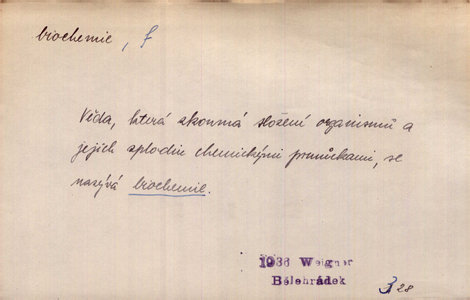 biochemie, f
Věda, která zkoumá složení organismů a
jejich zplodin chemickými pomůckami, se
nazývá biochemie.
1936 Weigner
Bělehrádek
3 28